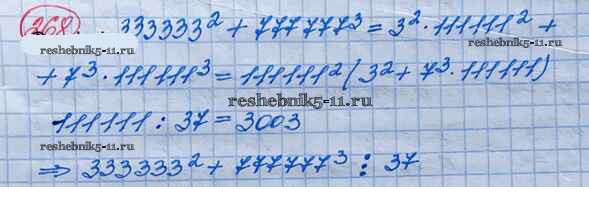 268 333333² + 777777³ = 3² · 111111² +
reshebnik5-11.ru
+ 7³ · 111111³ = 111111² (3² + 7³ · 111111)
reshebnik5-11.ru
111111 : 37 = 3003
reshebnik5-11.ru
⇒ 333333² + 777777³ ⋮ 37